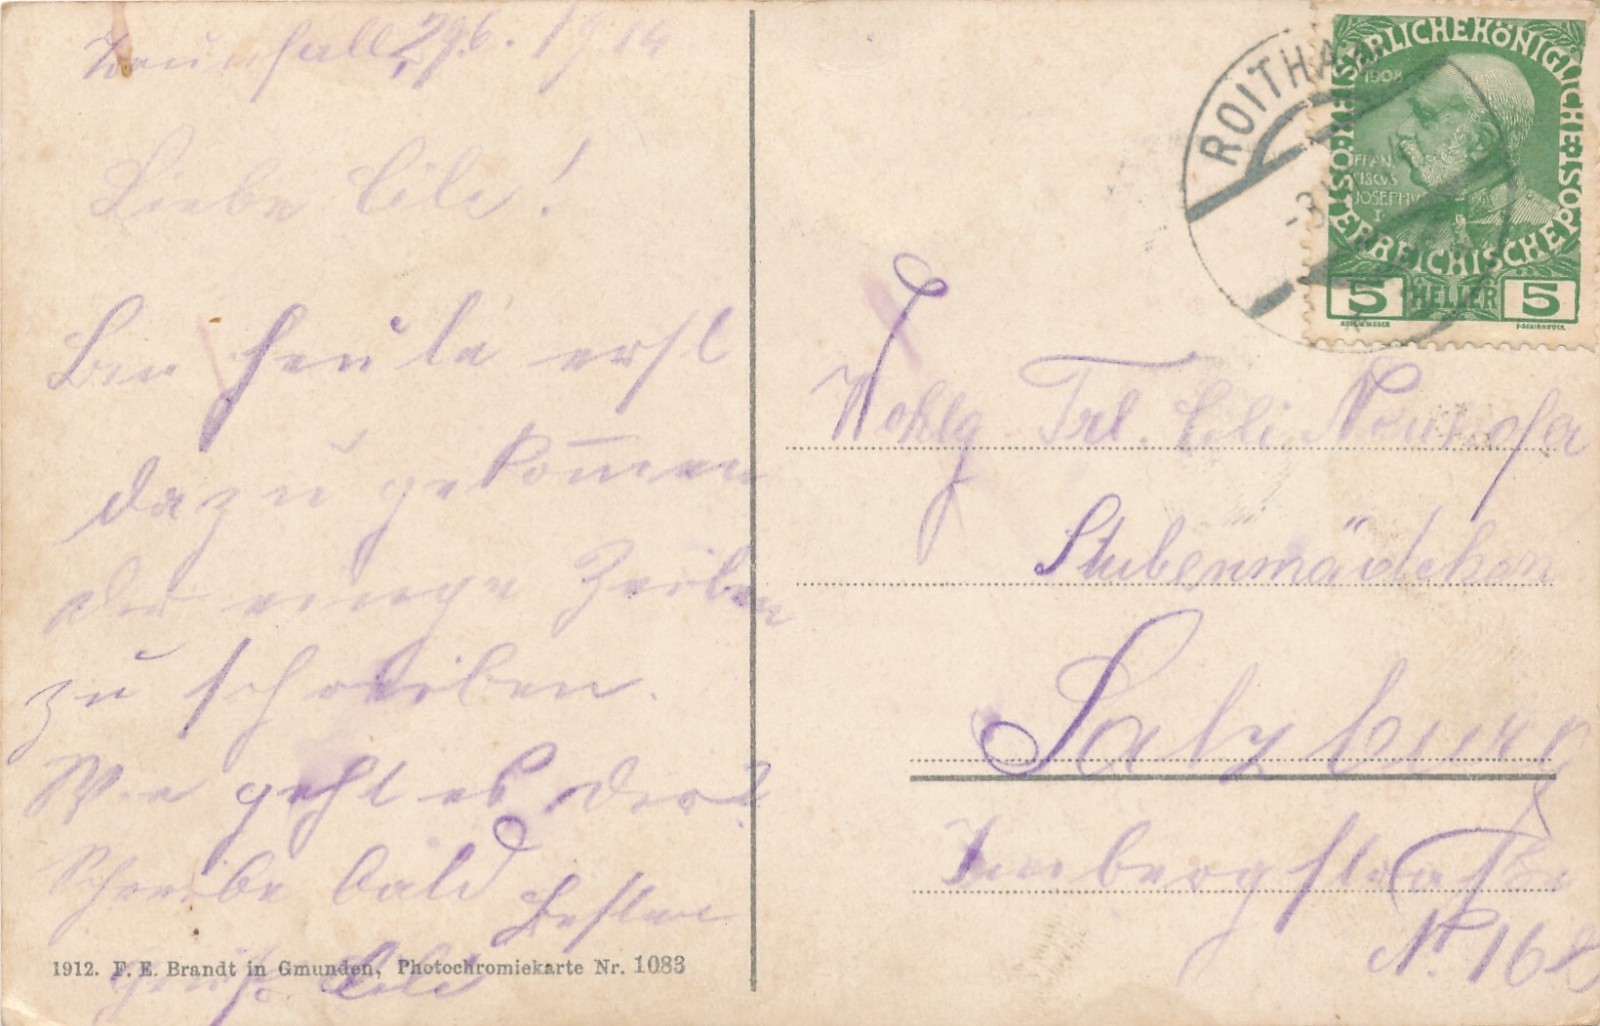 Traunfall, 29.6. 1914
Liebe Cili!
Bin heute erst
dazu gekom̅en
dir einige Zeilen
zu schreiben.
Wie geht es dir?
Schreibe bald
Besten
Gruß Cili
1912. F. E. Brandt in Gmunden, Photochromiekarte Nr. 1083
ROITHA
-3.
KAISERLICHEKÖNIGLICHE ÖSTERREICHISCHE POST
1908
FRAN
CISCVS
JOSEPHVS
I
5 HELLER 5
Wohlg. Frl. Cili
Stubenmädchen
Salzburg
Imbergstraße
Nr. 168